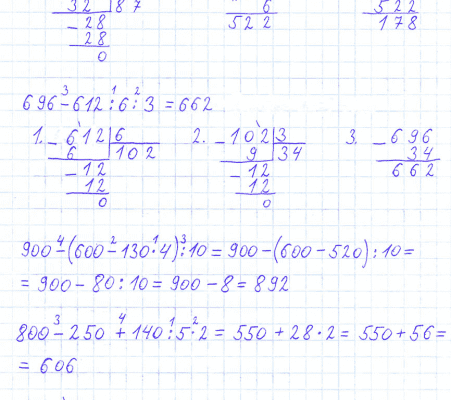 32 | 87 6 522
- 28 522 178
28
0
3 1 2
696 - 612 : 6 : 3 = 662
1. - 612 | 6 2. - 102 | 3 3. - 696
6 102 9 34 34
- 12 - 12 662
12 12
0 0
4 2 1 3
900 - (600 - 130 · 4) : 10 = 900 - (600 - 520) : 10 =
= 900 - 80 : 10 = 900 - 8 = 892
3 4 1 2
800 - 250 + 140 : 5 · 2 = 550 + 28 · 2 = 550 + 56 =
= 606